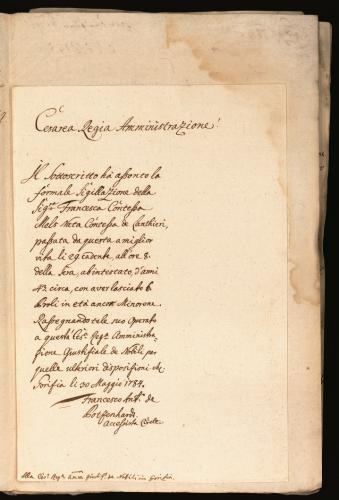 Cesarea Regia Amministrazione!
Il Sottoscritto hà assonto la
formale Sigillazione della
Sigra Francesca Contessa
Mels Nata Contessa de Lanthieri,
passata da questa a miglior
vita li 29 cadente, all'ore 8.
della sera, abintestata, d'anni
43 circa, con aver lasciato 6
Proli in età ancor Minorene.
Rassegnandotele suo operato
a questa Ces.a Reg.a Amministra-
zione Giustiziale de Nobili, per
quelle ulteriori disposizioni che
Gorizia li 30 Maggio 1784.
Francesco Ant.o de
Accessista
Alla Ces.a Reg.a Amm. giustiz.e de Nobili in Gorizia.